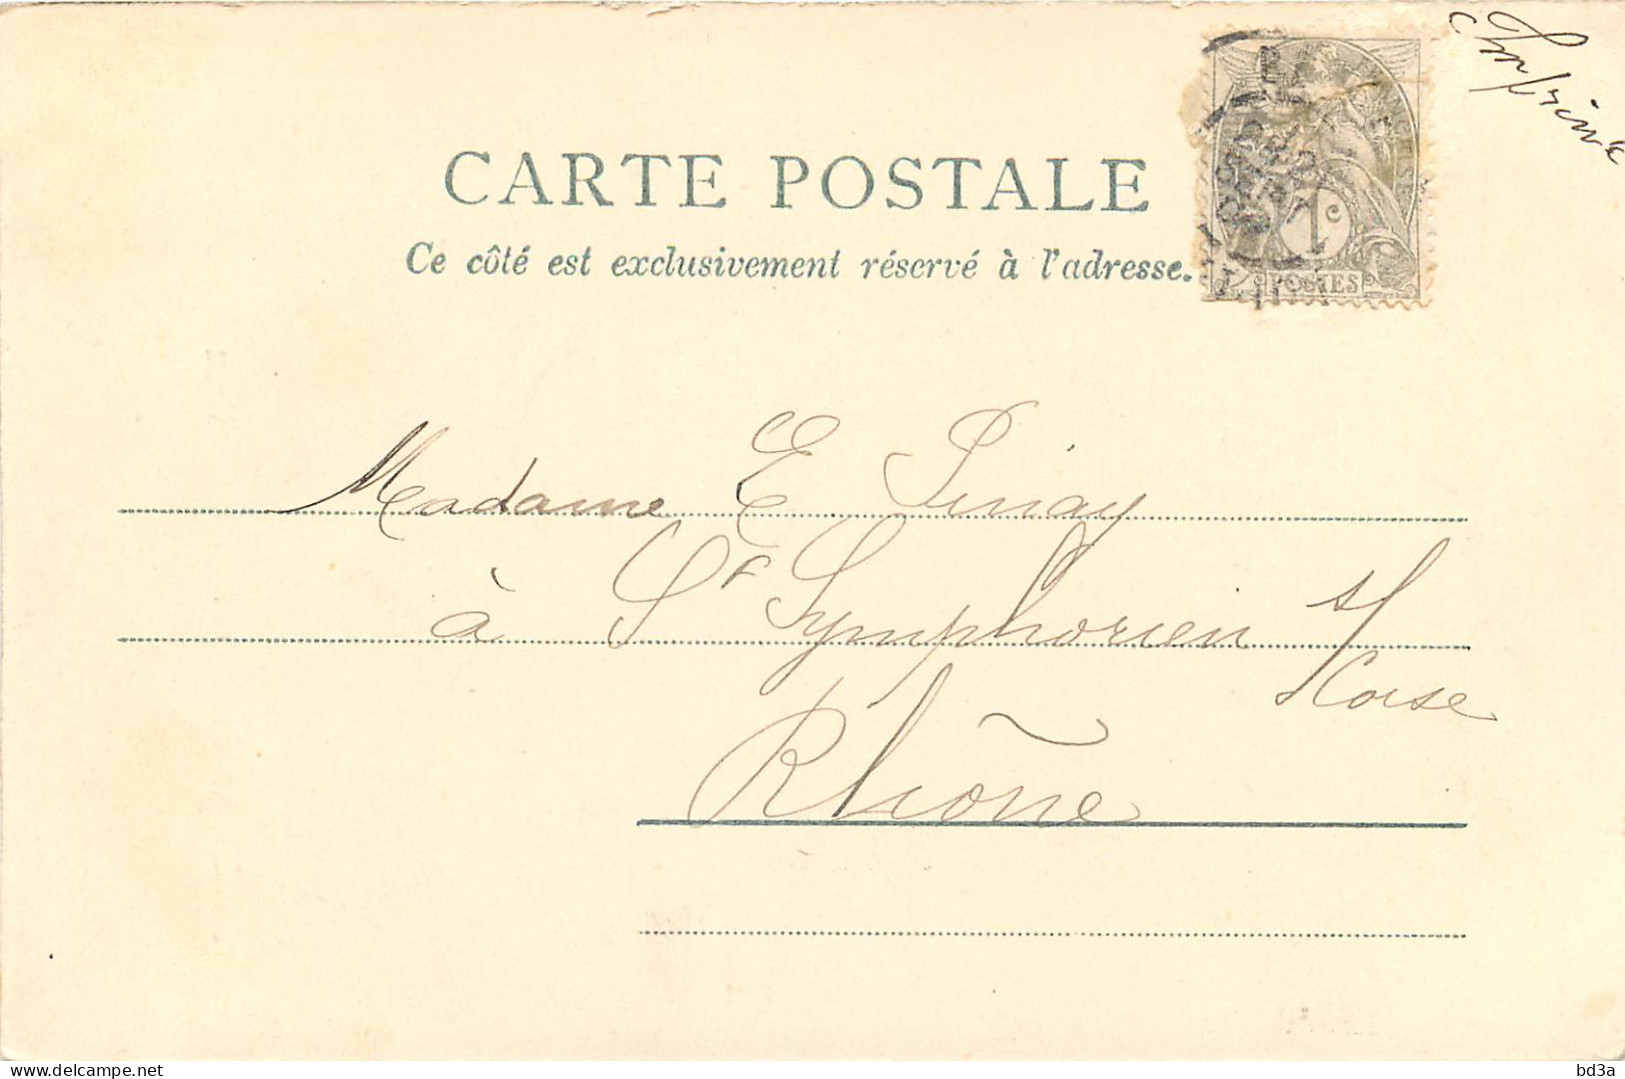 Imprimé
CARTE POSTALE
Ce côté est exclusivement réservé à l'adresse.
1c
POSTES
Madame E Pinay
à St Symphorien s/
Coise
Rhône
delcampe.net
bd3a